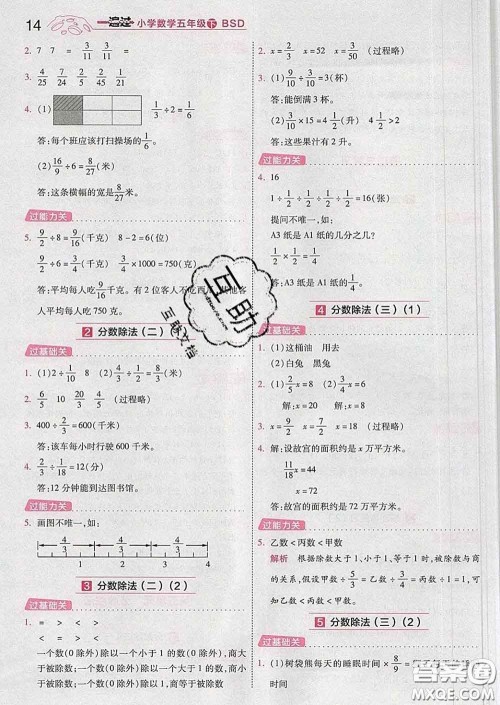 14 一遍过 小学数学五年级 下 BSD
2. 7 7 = 3/11 3/11 =
3. 24/25 4/45
4. (1) 1/3÷2=1/6
答:每个班应该打扫操场的1/6。
(2) 16/9÷6=8/27(米)
答:这条横幅的宽是8/27米。
过能力关
5. 9/2÷8=9/16(千克) 8-2=6(位)
9/2÷6=3/4(千克) 3/4×1000=750(克)
答:平均每人吃9/16千克。有2位客人不吃西
人平均每人吃750克。
2 分数除法(二)(1)
过基础关
1. (2) 1/10 8 (4) 4/3 8
2. 6/5 10 20/3 4/5 (过程略)
3. 400÷2/3=600(千米)
答:该车每小时行驶600千米。
4. 2/3÷1/18=12(分)
答:12分钟能到达图书馆。
过能力关
5. 画图不唯一,如:
4/3 4/3 4/3
0 1 2 3 4
3 分数除法(二)(2)
过基础关
1. = > < <
< = > >
一个数(0除外)除以一个小于1的数(0除外),商大
于被除数;一个数(0除外)除以一个大于1的数,商小
于被除数;一个数(0除外)除以1,商等于被除数。
2. x=50 x=3/50 (过程略)
3. (1) 9/10÷3/10=3(杯)
答:能倒满3杯。
(2) 3/10×15=4 1/2(升) 4 1/2>2
答:这些果汁有2升。
过能力关
4. 16
1÷1/2÷1/2÷1/2÷1/2=16(张)
提问不唯一,如:
A3纸是A1纸的几分之几?
答:A3纸是A1纸的
4 分数除法(三)(1)
过基础关
1. (1)这桶油 用去
(2)白兔 黑兔
2. (1) 2/5x=8 (2) 3/4x=6
解:x=20 解:x=8
3. x=18 (过程略)
4. 解:设故宫的面积约是x万平方米。
11/18x=44
x=72
答:故宫的面积约是72万平方米。
过能力关
5. 乙数<丙数<甲数
解析 根据除数大于1、小于1、等于1时,被除数与商
的关系,假设甲数÷5/3=丙数÷3/3=乙数÷3/4,可得
乙数<丙数<甲数。
5 分数除法(三)(2)
过基础关
1. (1)树袋熊每天的睡眠时间×8/9=
时间
互助
互助文档
答案圈
MXQE.COM